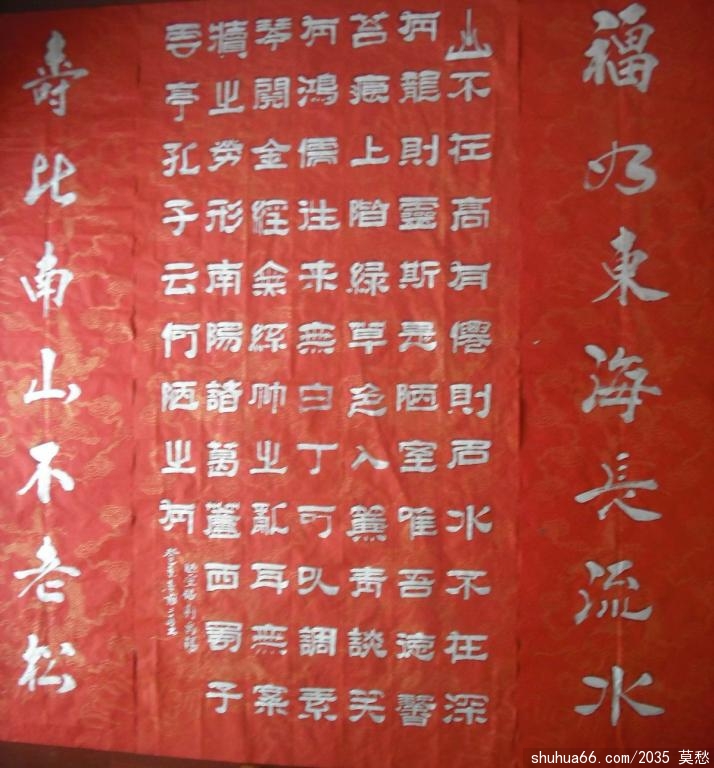 福如東海長流水
山不在高有僊則名水不在深
有龍則靈斯是陋室唯吾德馨
苔痕上階綠草色入簾青談笑
有鴻儒往来無白丁可以調素
琴閱金經無絲竹之亂耳無案
牘之勞形南陽諸葛廬西蜀子
雲亭孔子云何陋之有
陋室銘劉禹錫
壽比南山不老松
shuhua66.com/2035 莫愁